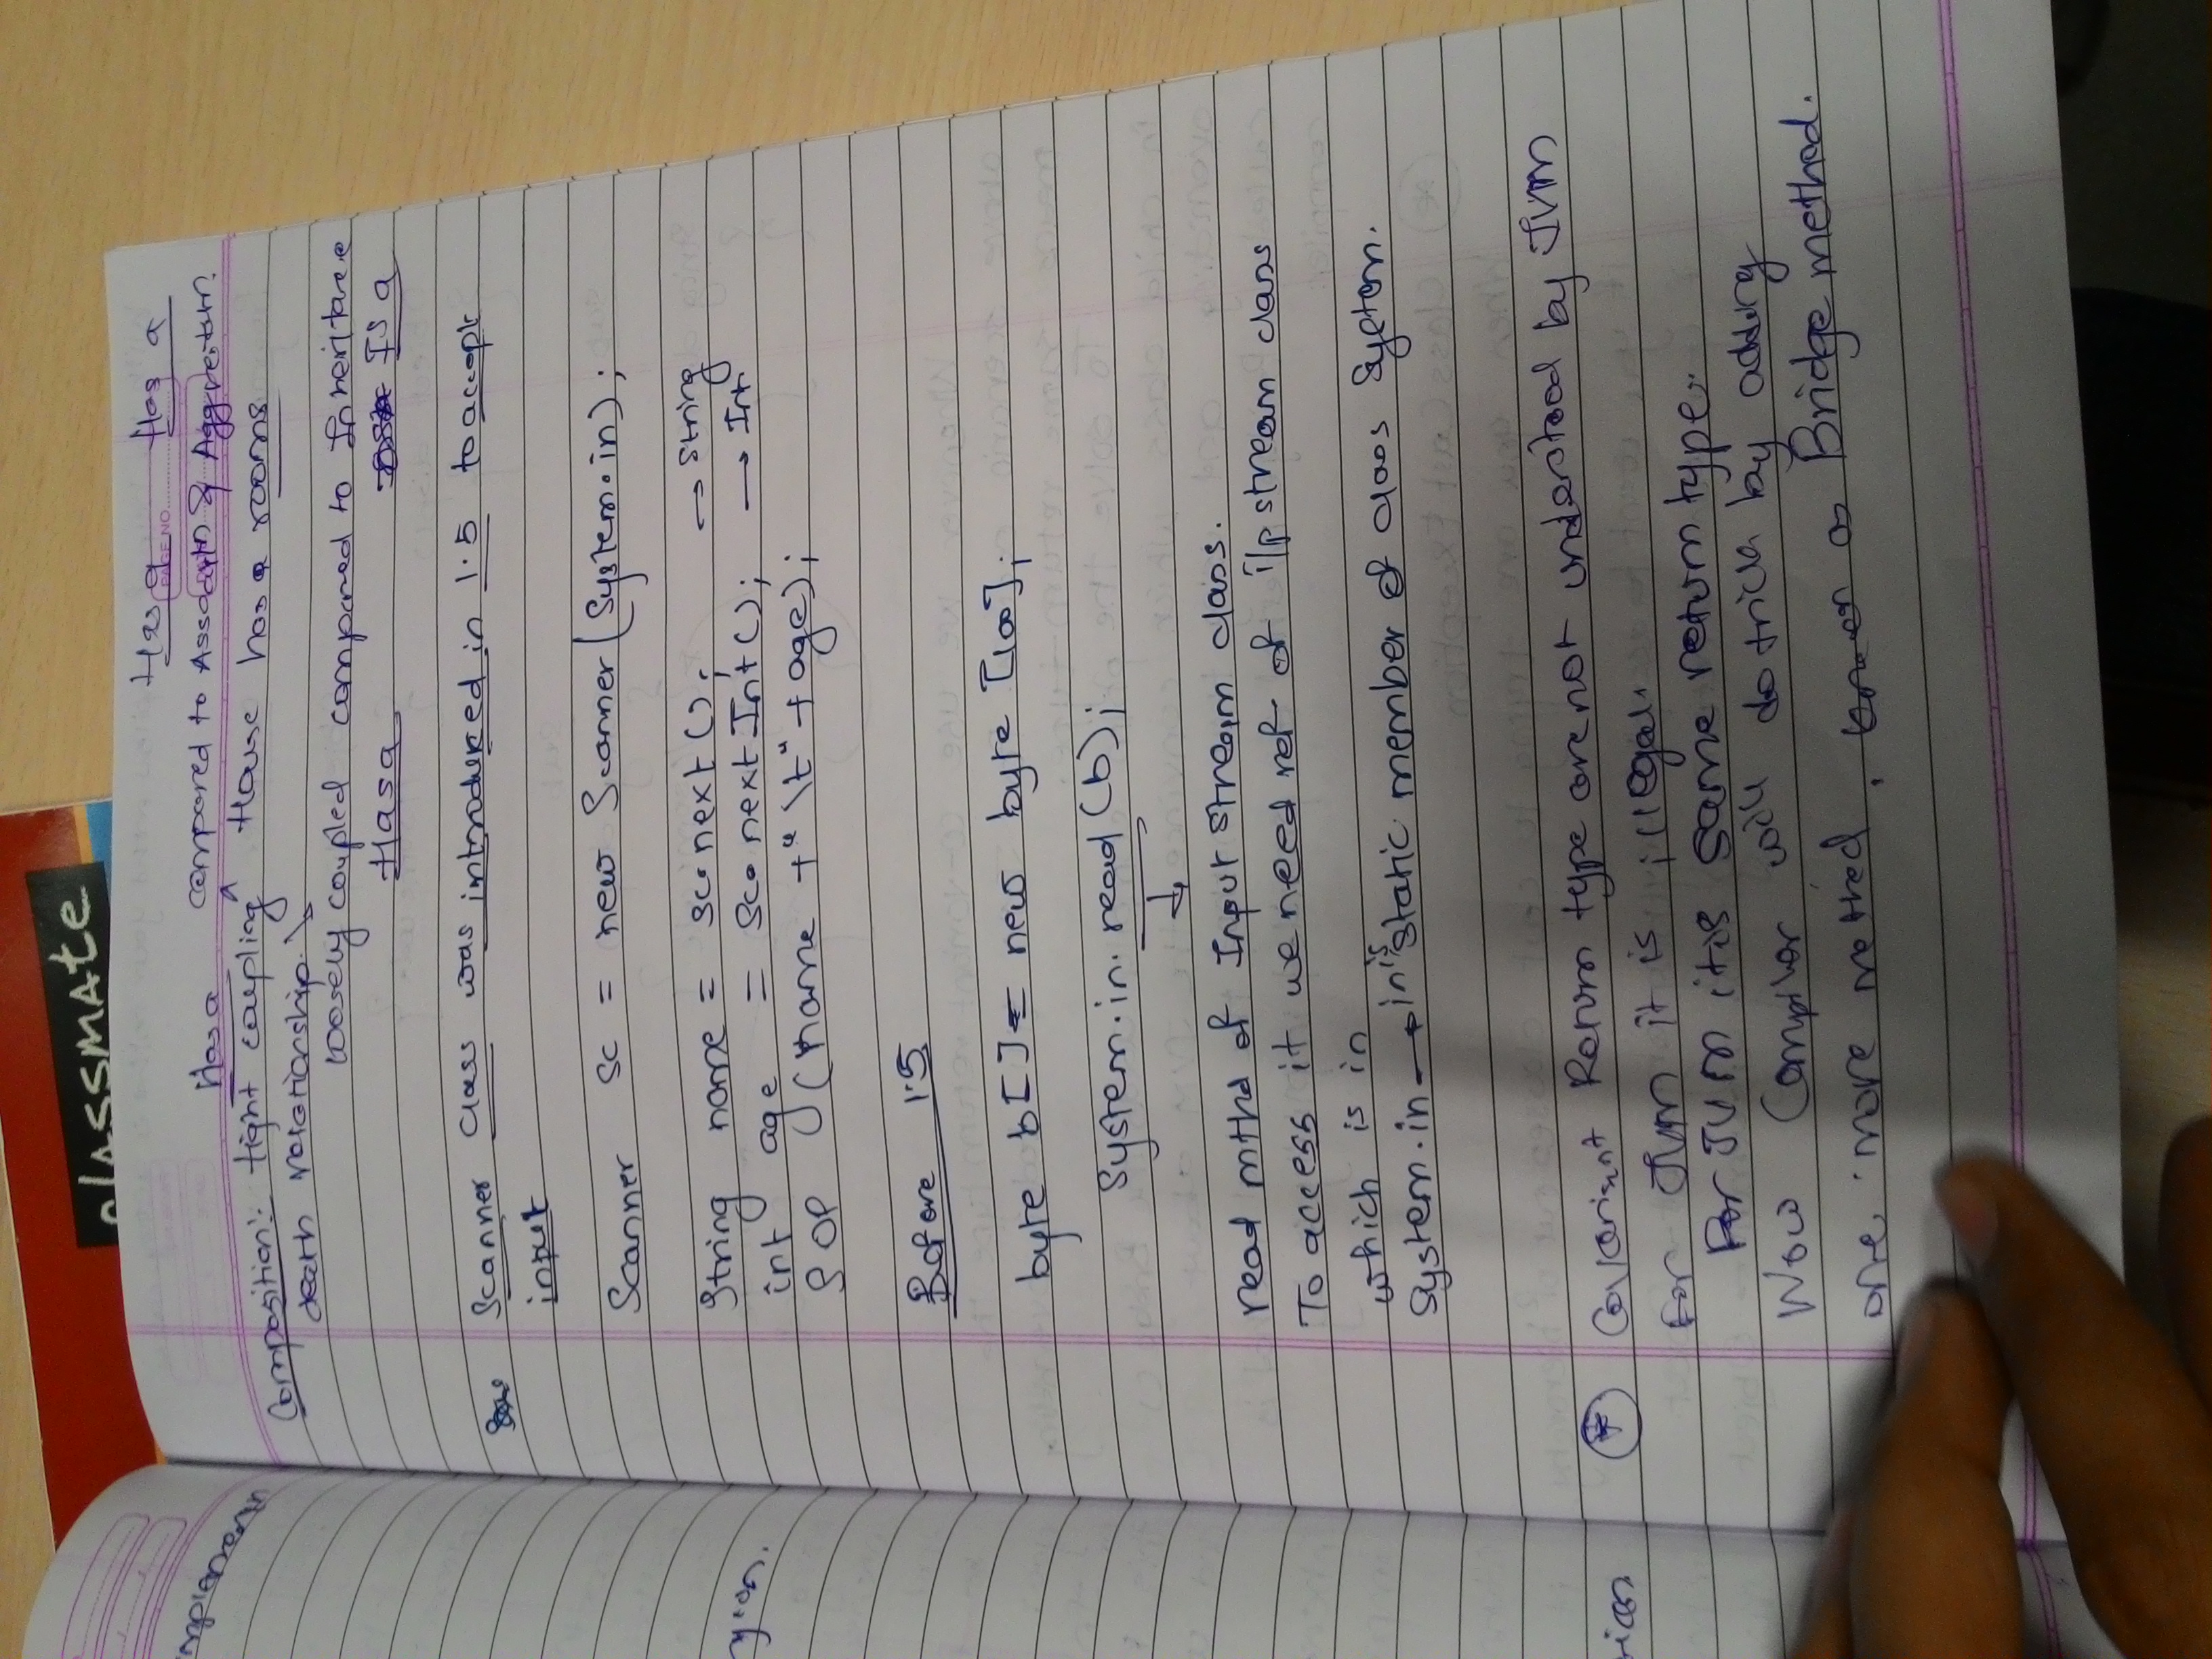 classmate
Has a Has a
PAGE NO.
Has a compared to Association & Aggregation.
Composition:- tight coupling ^ House has a rooms
death relationship.
loosely coupled compared to Inheritance
Has a IS a
Scanner class was introduced in 1.5 to accept
input
Scanner sc = new Scanner(System.in);
String name = sc.next(); → String
int age = sc.nextInt(); → Int
SOP (name +"\t"+age);
Before 1.5
byte b[]= new byte [100];
System.in.read(b);
↓
read mthd of Input Stream class.
To access it we need ref of i/p stream class
which is in
System.in → in is static member of class System.
Covariant Return type are not understood by JVM
For JVM it is illegal.
For JVM it is same return type.
Now Compiler will do trick by adding
one more method, known as Bridge method.